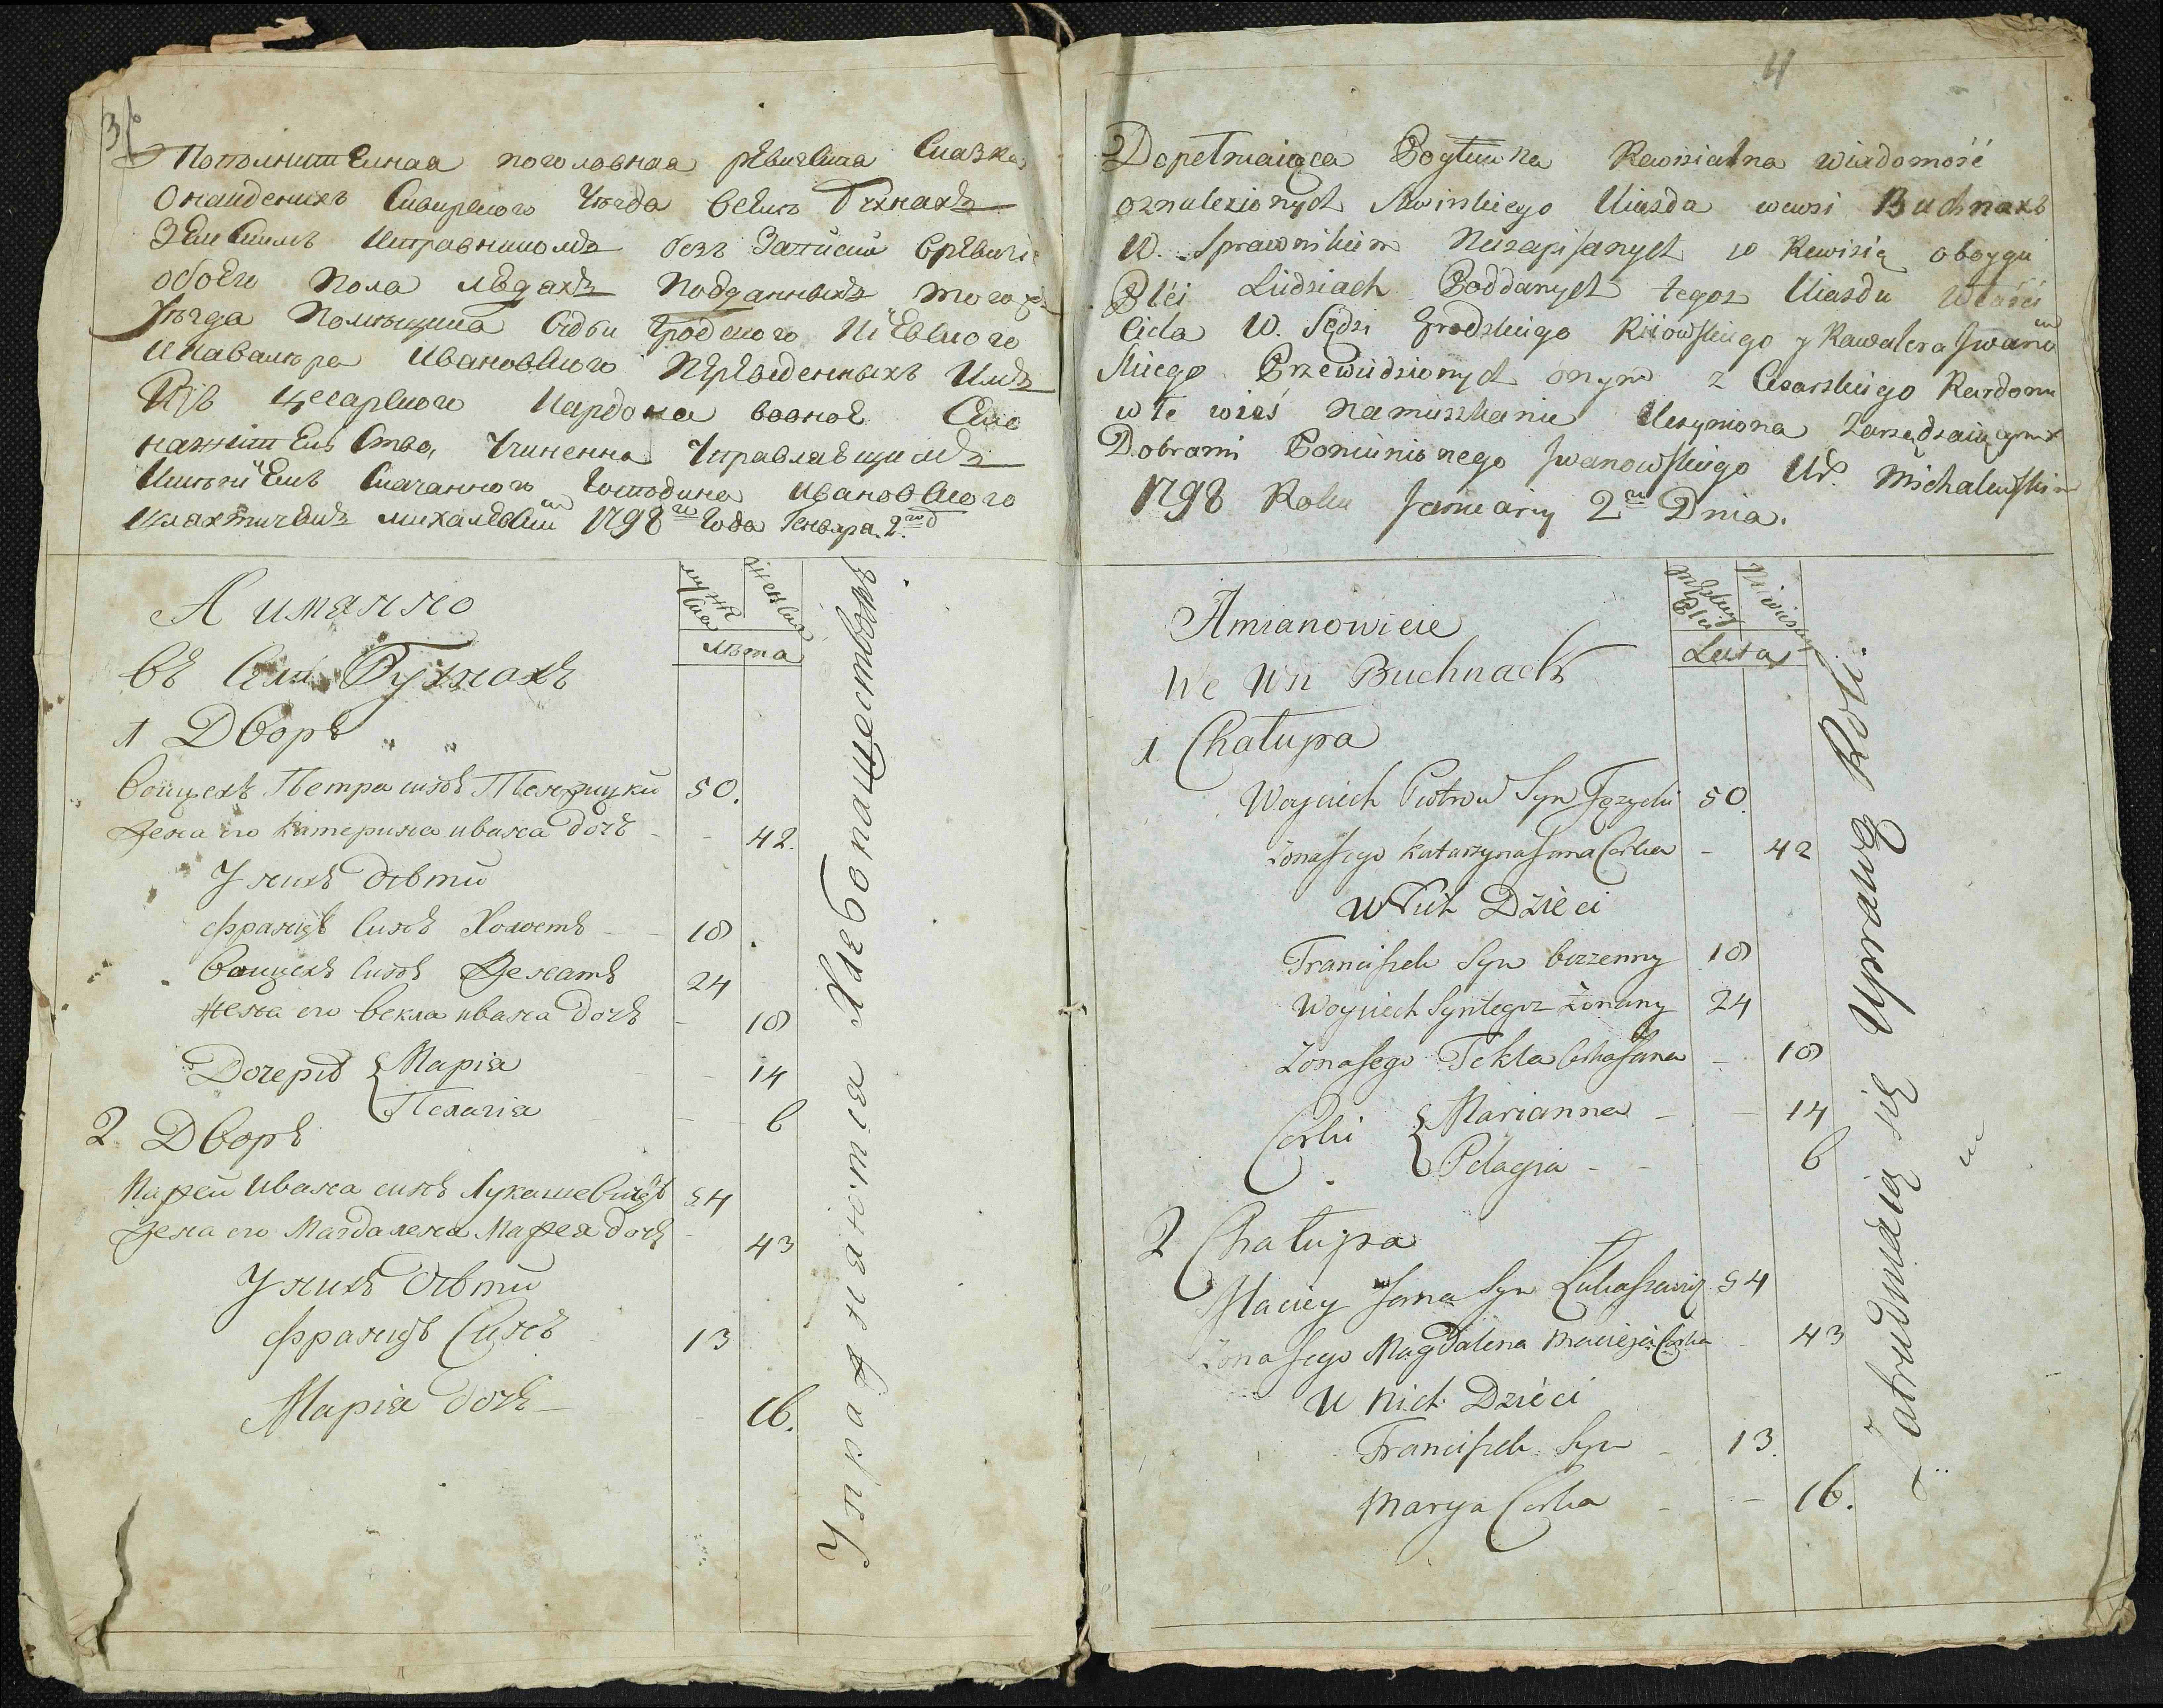 3
Пополнителная поголовная ревизская Сказка
О наиденихъ Сквирского Уезда Селъ Бухнахъ
Земскимъ Исправникомъ безъ Записки вревизию
обоего пола людяхъ подданныхъ того ж
Уезда помещика Судьи Гродского Киевского
И Кавалера Ивановского переведенныхъ имъ
Изъ Цесарского Кардона вооное Село
на жителство, Учиненна Управлаещимъ
Имениемъ Сказанного Господина Ивановского
Шляхтичемъ Михалевским 1798го Года Генваря 2го д
А имянно
въ Селе Бухнахъ
мужска
женска
лета
1 Дворъ
Воицехъ Петра синъ 50.
Жена его Катерина ивана дочъ - - 42.
У нихъ дети
Францъ Синъ Холостъ - - 18
Воицехъ Синъ Женатъ 24
Жена его Векла ивана дочъ - 18
Дочеры { Мария - - 14
Пелагия - - 6
2 Дворъ
Мацеи Ивана синъ Лукашевичъ 54
Жена его Магдалена Мацея дочъ - 43
У нихъ дети
Францъ Синъ 13
Мария дочъ - - 16.
Упражняются Хлебопашествомъ
4
Dopełniaiąca Pogłuwna Rewizialna wiadomość
oznalezionych Skwirskiego Uiazdu wewsi Buchnaxъ
W. Sprawnikiem Niezapisanych w Rewizią oboygu
Płci Ludziach Poddanych tegoz Uiazdu Właści
ciela W. Sędzi Grodzkiego Kiiowskiego y Kawalera Iwanow
skiego Przewiedzionych onym z Cesarskiego Kardonu
w te wieś na miszkanie Uczyniona Zarządzaiącym
Dobrami Pomienionego Iwanowskiego Ur. Michalewskim
1798 Roku January 2go Dnia.
Amianowicie
We Wsi Buchnach
Męskiey Płci
Niewiesciey
Lata
1 Chałupa
Woyciech Piotrow Syn Języcki 50.
Zona Jego Katarzyna Jana Corka - 42
U Nich Dzieci
Franciszek Syn bezzenny 18
Woyciech Syn tegoz Zonany 24
Zona Jego Tekla Corka Jana - 18
Corki { Marianna - - 14
Pelagia - - 6
2 Chałupa
Maciey Jana Syn Łukaszewicz 54
Zona Jego Magdalena Macieja Corka - 43
U Nich Dzieci
Franciszek Syn - 13.
Marya Corka - - 16.
Zatrudniaią się Uprawą Roli.